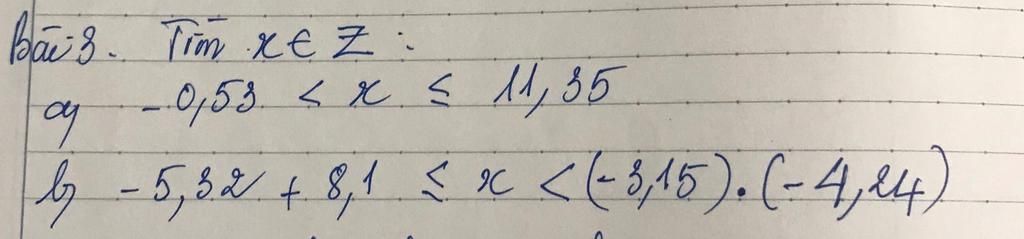 Bài 3. Tìm x ∈ Z :
a) -0,53 < x ≤ 11,35
b) -5,32 + 8,1 ≤ x < (-3,15).(-4,24)